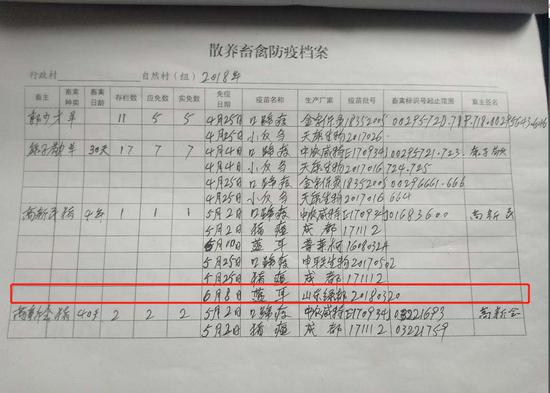 散养畜禽防疫档案
行政村 自然村(组) 2018年
畜主 畜禽种类 畜禽日龄 存栏数 应免数 实免数 免疫日期 疫苗名称 生产厂家 疫苗批号 畜禽标识号起止范围 畜主签名
羊 11 5 5 4月25日 口蹄疫 18352005
4月25日 小反刍 天康生物 2017026
羊 30天 17 7 7 4月4日 口蹄疫 中农威特 E170934J 00295721.723
4月4日 小反刍 天康生物 2017016 724.725
4月25日 口蹄疫 18352005 00296661.666
4月25日 小反刍 天康生物 2017016 664
高新 猪 1 1 1 5月2日 口蹄疫 中农威特 E170934J 01683600 高新
5月2日 猪瘟 成都 171112
蓝耳 普莱柯 1608032A
5月25日 口蹄疫 申联生物 20170502
5月25日 猪瘟 成都 171112
6月8日 蓝耳 山东绿都 20180320
高新 猪 40天 2 2 2 5月2日 口蹄疫 中农威特 E170934J 03221693 高新
5月2日 猪瘟 成都 171112 03221759